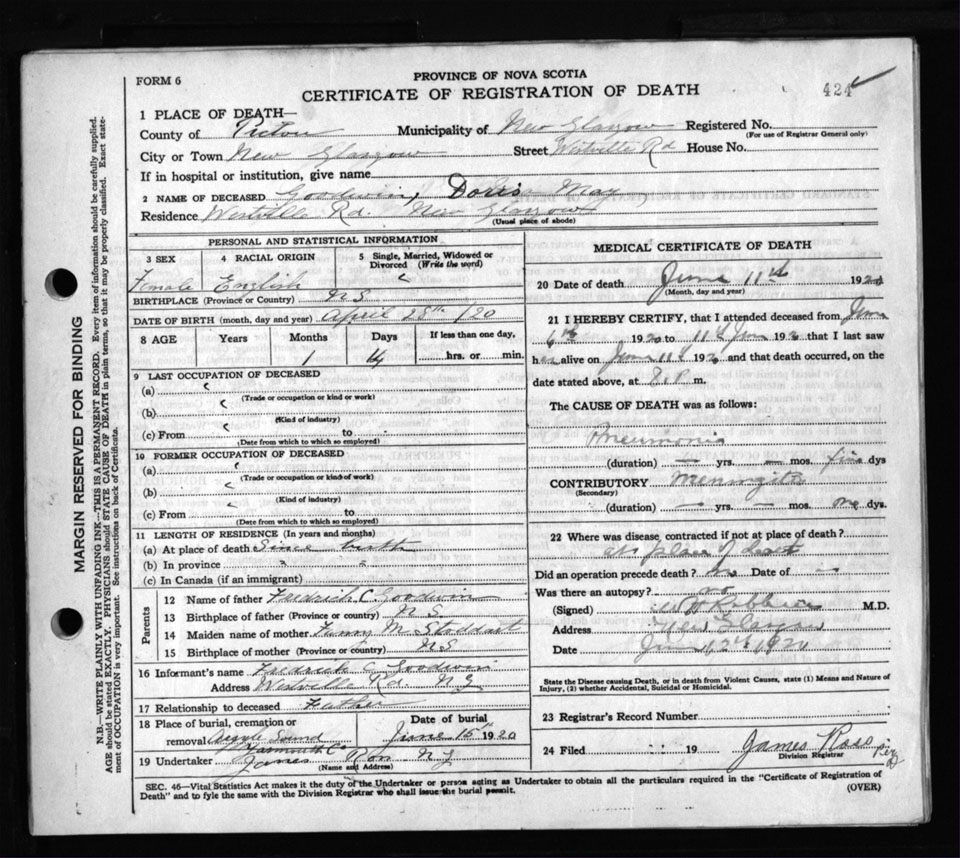 FORM 6
PROVINCE OF NOVA SCOTIA
CERTIFICATE OF REGISTRATION OF DEATH
424
1 PLACE OF DEATH—
County of Pictou Municipality of New Glasgow Registered No.
(For use of Registrar General only)
City or Town New Glasgow Street Westville Rd House No.
If in hospital or institution, give name
2 NAME OF DECEASED Goodwin, Doris May
Residence Westville Rd New Glasgow
(Usual place of abode)
PERSONAL AND STATISTICAL INFORMATION
3 SEX 4 RACIAL ORIGIN 5 Single, Married, Widowed or Divorced (Write the word)
Female English
BIRTHPLACE (Province or Country) N S
DATE OF BIRTH (month, day and year) April 28th /20
8 AGE Years Months Days If less than one day,
1 14 hrs. or min.
9 LAST OCCUPATION OF DECEASED
(a)
(Trade or occupation or kind or work)
(b)
(Kind of industry)
(c) From to
(Date from which to which so employed)
10 FORMER OCCUPATION OF DECEASED
(a)
(Trade or occupation or kind of work)
(b)
(Kind of industry)
(c) From to
(Date from which to which so employed)
11 LENGTH OF RESIDENCE (In years and months)
(a) At place of death Since birth
(b) In province " "
(c) In Canada (if an immigrant)
Parents
12 Name of father Fredrich C Goodwin
13 Birthplace of father (Province or country) N S
14 Maiden name of mother Fanny M Stoddart
15 Birthplace of mother (Province or country) N S
16 Informant's name Fredrich C Goodwin
Address Westville Rd. N S
17 Relationship to deceased Father
18 Place of burial, cremation or removal Argyle Sound Yarmouth Co
Date of burial June 15th 1920
19 Undertaker James Ross N S
(Name and Address)
MEDICAL CERTIFICATE OF DEATH
20 Date of death June 11th 1920
(Month, day and year)
21 I HEREBY CERTIFY, that I attended deceased from June
6th 1920 to 11th June 1920 that I last saw
her alive on June 11th 1920 and that death occurred, on the
date stated above, at 8 P m.
The CAUSE OF DEATH was as follows:
Pneumonia
(duration) — yrs. — mos. five dys
CONTRIBUTORY Meningitis
(Secondary)
(duration) — yrs. — mos. one dys.
22 Where was disease, contracted if not at place of death?
at place of death
Did an operation precede death? no Date of —
Was there an autopsy? no
(Signed) M.D.
Address New Glasgow
Date June 12th 1920
State the Disease causing Death, or in death from Violent Causes, state (1) Means and Nature of
Injury, (2) whether Accidental, Suicidal or Homicidal.
23 Registrar's Record Number
24 Filed 19 James Ross
Division Registrar
SEC. 46—Vital Statistics Act makes it the duty of the Undertaker or person acting as Undertaker to obtain all the particulars required in the "Certificate of Registration of
Death" and to fyle the same with the Division Registrar who shall issue the burial permit.
(OVER)
MARGIN RESERVED FOR BINDING
N.B.—WRITE PLAINLY WITH UNFADING INK—THIS IS A PERMANENT RECORD. Every item of information should be carefully supplied.
AGE should be stated EXACTLY. PHYSICIANS should STATE CAUSE OF DEATH in plain terms, so that it may be properly classified. Exact state-
ment of OCCUPATION is very important. See instructions on back of Certificate.